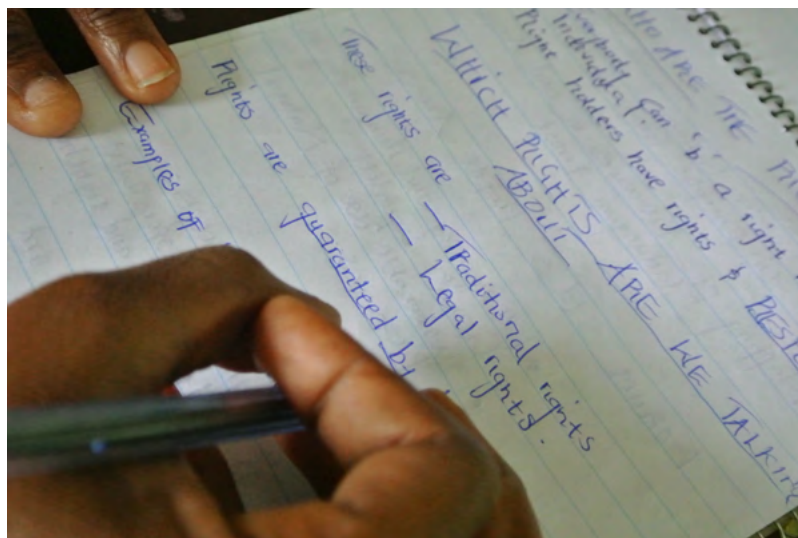 WHO ARE THE
Everybody can 'b' a right
Individual.
Right holders have rights &
WHICH RIGHTS ARE WE TALKING
ABOUT
These rights are – Traditional rights
– Legal rights.
Rights are guaranteed by
Examples of